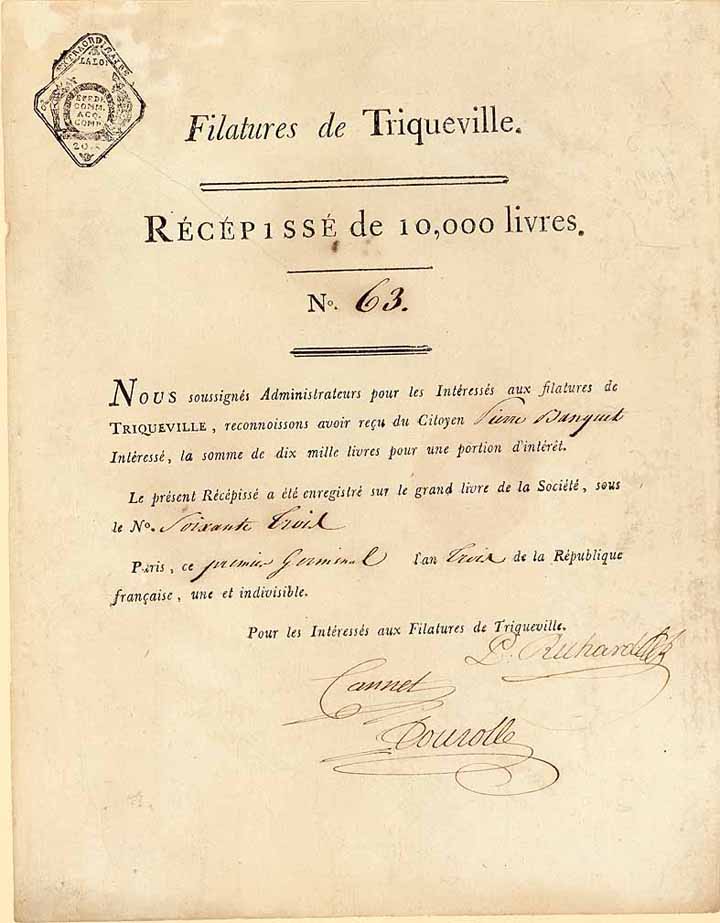 EXTRAORDINAIRE
LALOI
EXPEDI.
COMM.
ACQ.
COMP.
20.s
Filatures de Triqueville.
RÉCÉPISSÉ de 10,000 livres.
No. 63.
NOUS soussignés Administrateurs pour les Intéressés aux filatures de
TRIQUEVILLE, reconnoissons avoir reçu du Citoyen Pierre Banquet
Intéressé, la somme de dix mille livres pour une portion d'intérêt.
Le présent Récépissé a été enregistré sur le grand livre de la Société, sous
le No. Soixante Trois
Paris, ce premier Germinal l'an Trois de la République
française, une et indivisible.
Pour les Intéressés aux Filatures de Triqueville.
Cannet